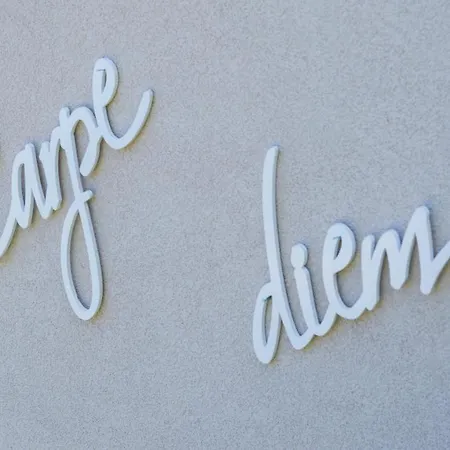 carpe
diem